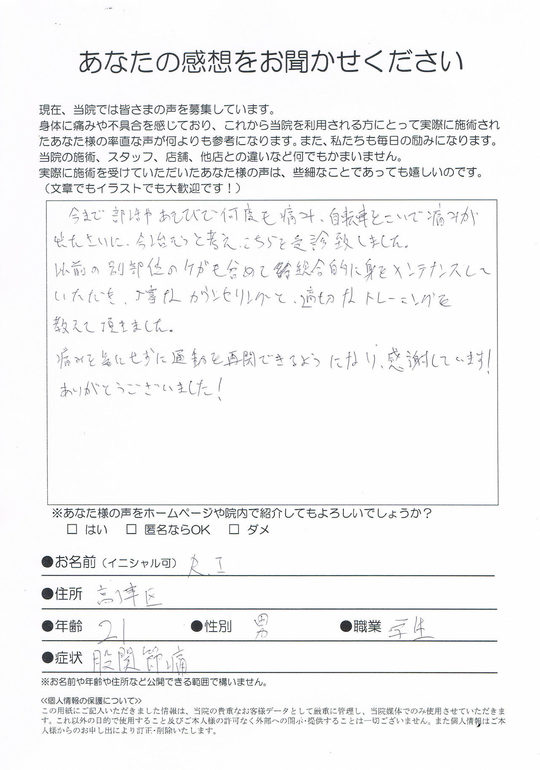 あなたの感想をお聞かせください
現在、当院では皆さまの声を募集しています。
身体に痛みや不具合を感じており、これから当院を利用される方にとって実際に施術され
たあなた様の率直な声が何よりも参考になります。また、私たちも毎日の励みになります。
当院の施術、スタッフ、店舗、他店との違いなど何でもかまいません。
実際に施術を受けていただいたあなた様の声は、些細なことであっても嬉しいのです。
（文章でもイラストでも大歓迎です！）
今まで 部活や あそびで 何度も痛み、自転車をこいで痛みが
出たさいに、今治そうと考え、こちらを受診致しました。
以前の別部位のケガも含めて 総合的に身をメンテナンスして
いただき、丁寧な カウンセリングと、適切な トレーニングを
教えて頂きました。
痛みを気にせずに運動を再開できるようになり、感謝しています！
ありがとうございました！
※あなた様の声をホームページや院内で紹介してもよろしいでしょうか？
□ はい □ 匿名ならOK □ ダメ
●お名前（イニシャル可） R.I
●住所 高津区
●年齢 21 ●性別 男 ●職業 学生
●症状 股関節痛
※お名前や年齢や住所など公開できる範囲で構いません。
≪個人情報の保護について≫
この用紙にご記入いただきました情報は、当院の貴重なお客様データとして厳重に管理し、当院媒体でのみ使用させていただきま
す。これ以外の目的で使用すること及びご本人様の許可なく外部への開示・提供することは一切ございません。また個人情報はご本
人様からのお申し出により訂正・削除いたします。